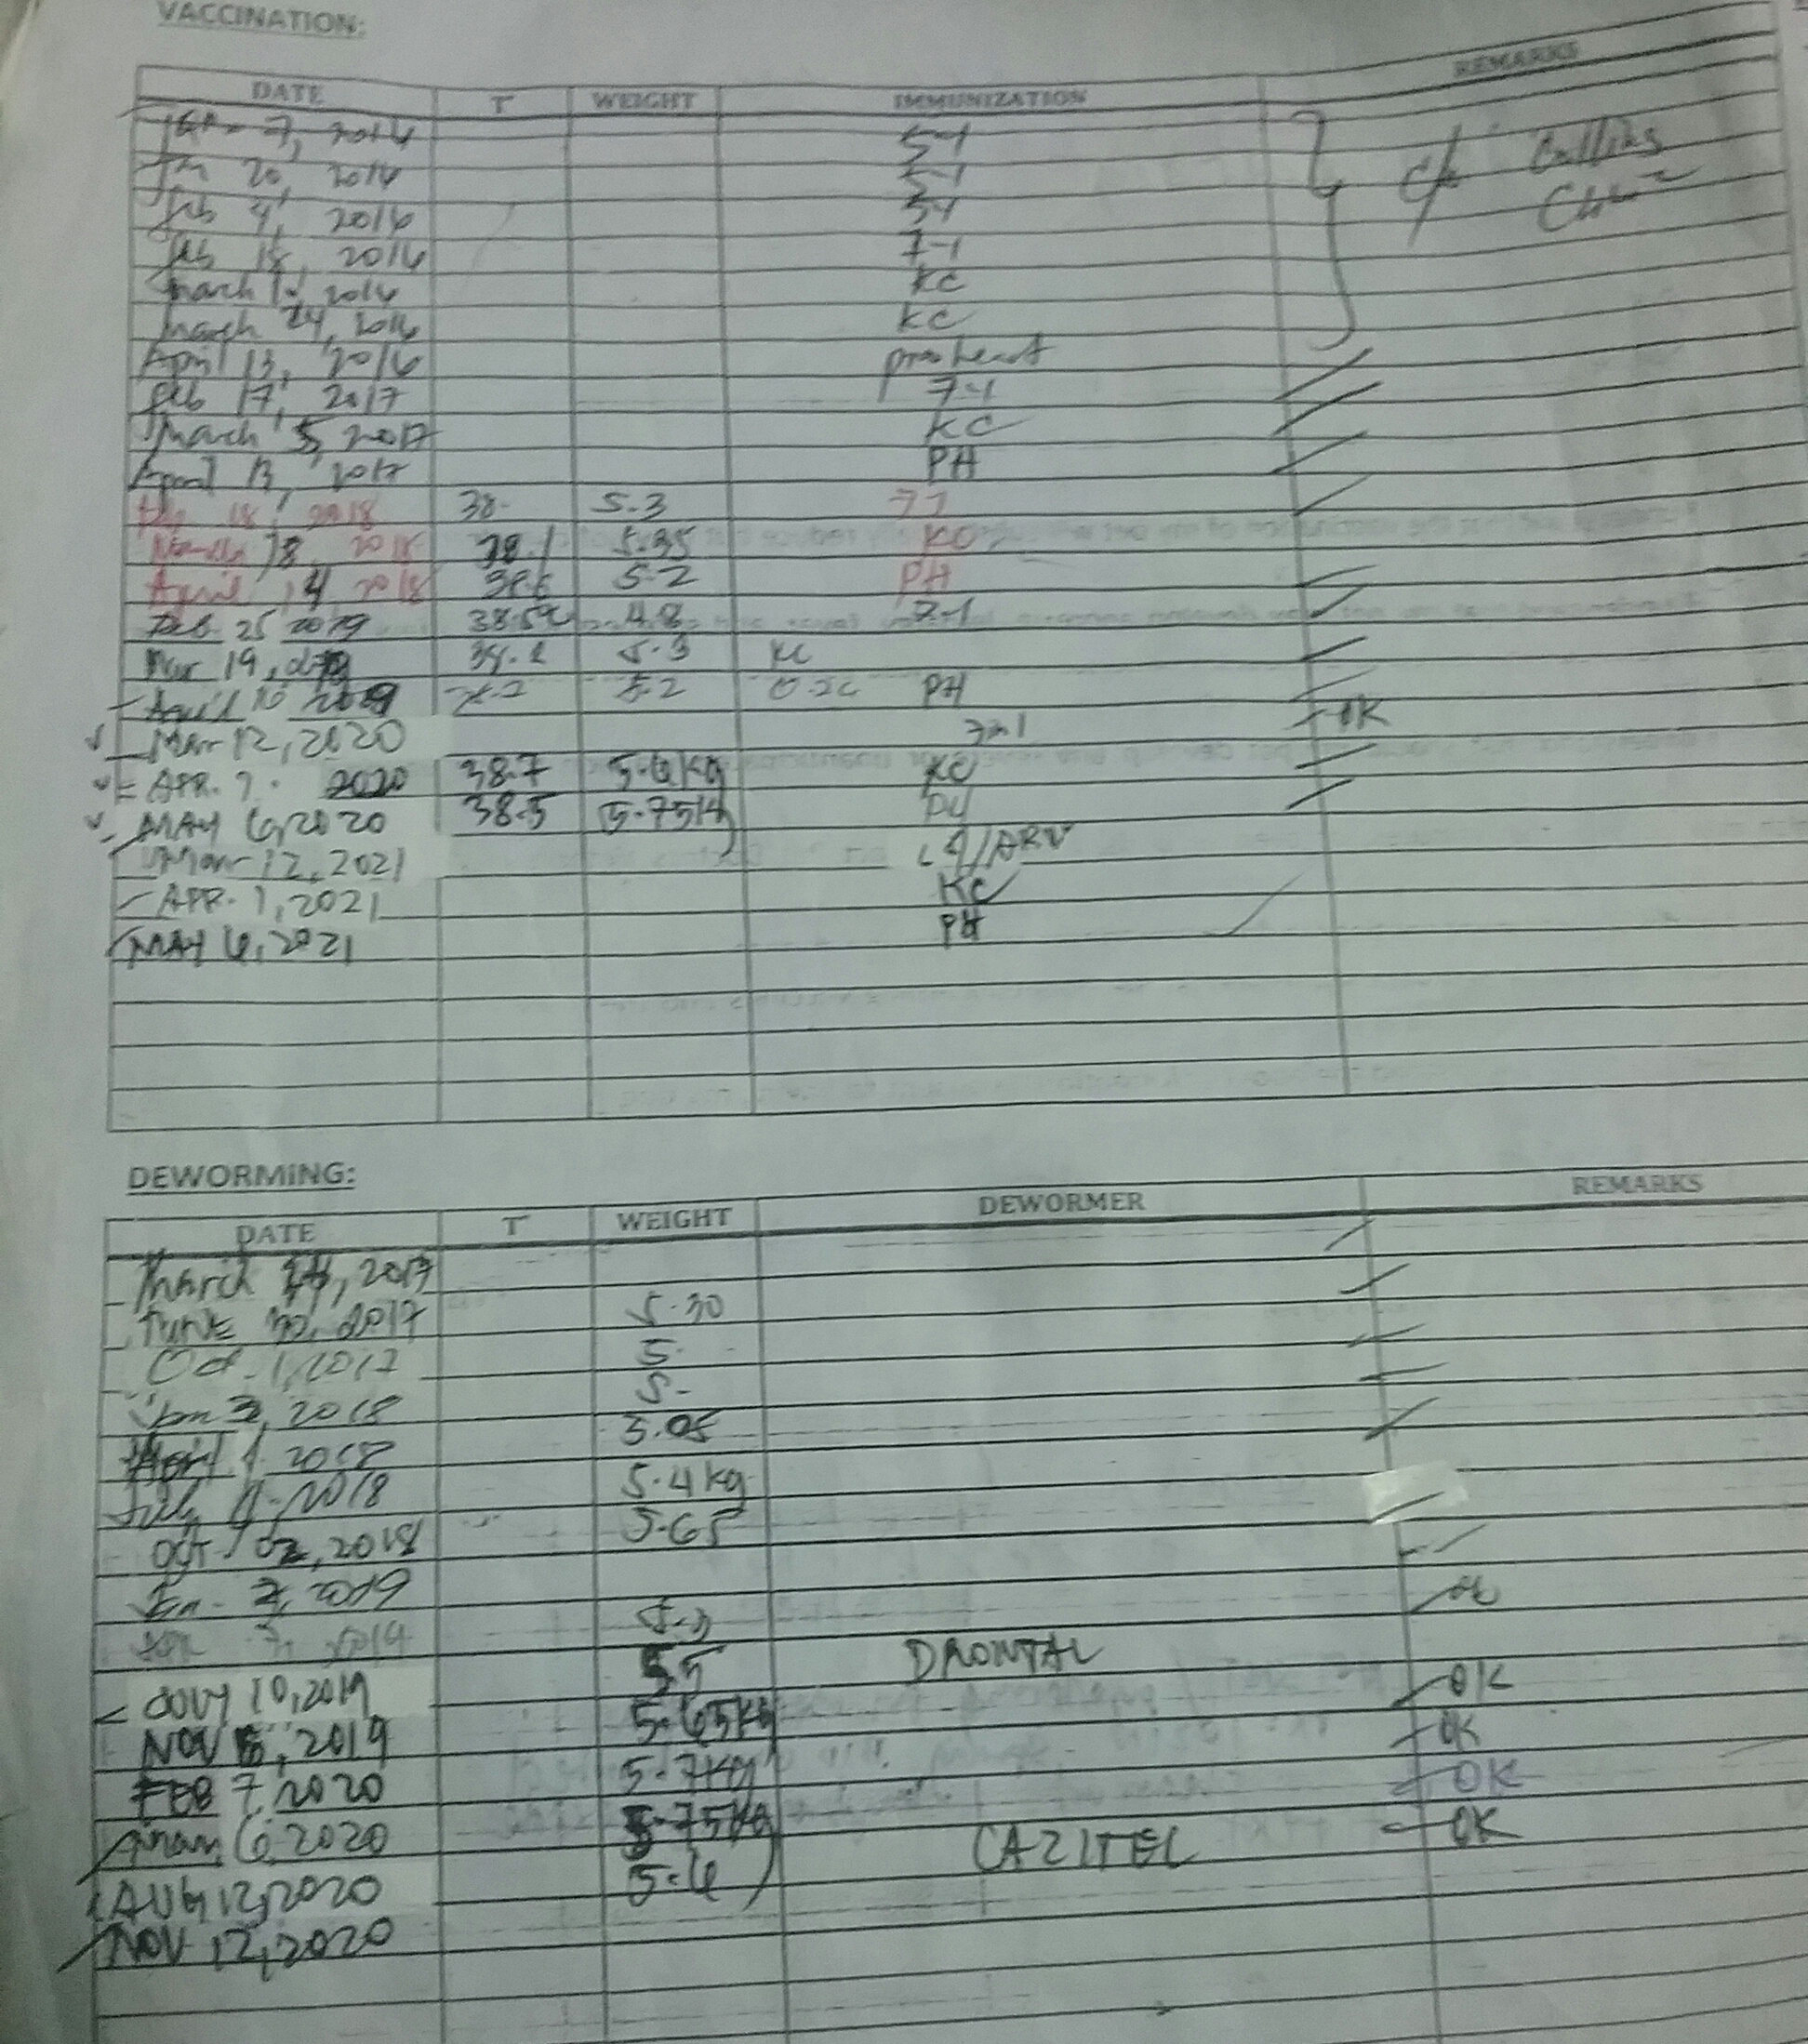 VACCINATION:
DATE T WEIGHT IMMUNIZATION REMARKS
7, 2016 5-1
Jan 20, 2016 5-1 c/o Collins
Feb 4, 2016 5-1
Feb 18, 2016 7-1
March 2016 KC
March 24, 2016 KC
April 13, 2016 proheart
Feb 17, 2017 7-1
March 5, 2017 KC
April 13, 2017 PH
18, 2018 38. 5.3 7 1
8, 2018 38.1 5.35 KC
April 14 2018 38.6 5.2 PH
Feb. 25 2019 38.5 4.8 7-1
Mar 19, 5.3 KC
April 10 2019 5.2 PH
Mar 12, 2020 7n1 OK
APR. 7. 2020 38.7 5.6kg KC
MAY 6, 2020 38.5 5.75kg PH
Mar 12, 2021 /ARV
APR. 1, 2021 KC
MAY 6, 2021 PH
DEWORMING:
DATE T WEIGHT DEWORMER REMARKS
March 2017
JUNE 30, 2017 5.30
Oct. 1, 2017 5.
Jan 3, 2018 5.
April 1 2018 5.05
July 2018 5.4kg
Oct 02, 2018 5.65
Jan. 2, 2019
2019 5.3 ok
JULY 10, 2019 5.5 DRONTAL
NOV 2019 5.65kg OK
FEB 7, 2020 5.7kg OK
May 6, 2020 5.75kg OK
AUG 12, 2020 5.6 CAZITEL OK
NOV 12, 2020